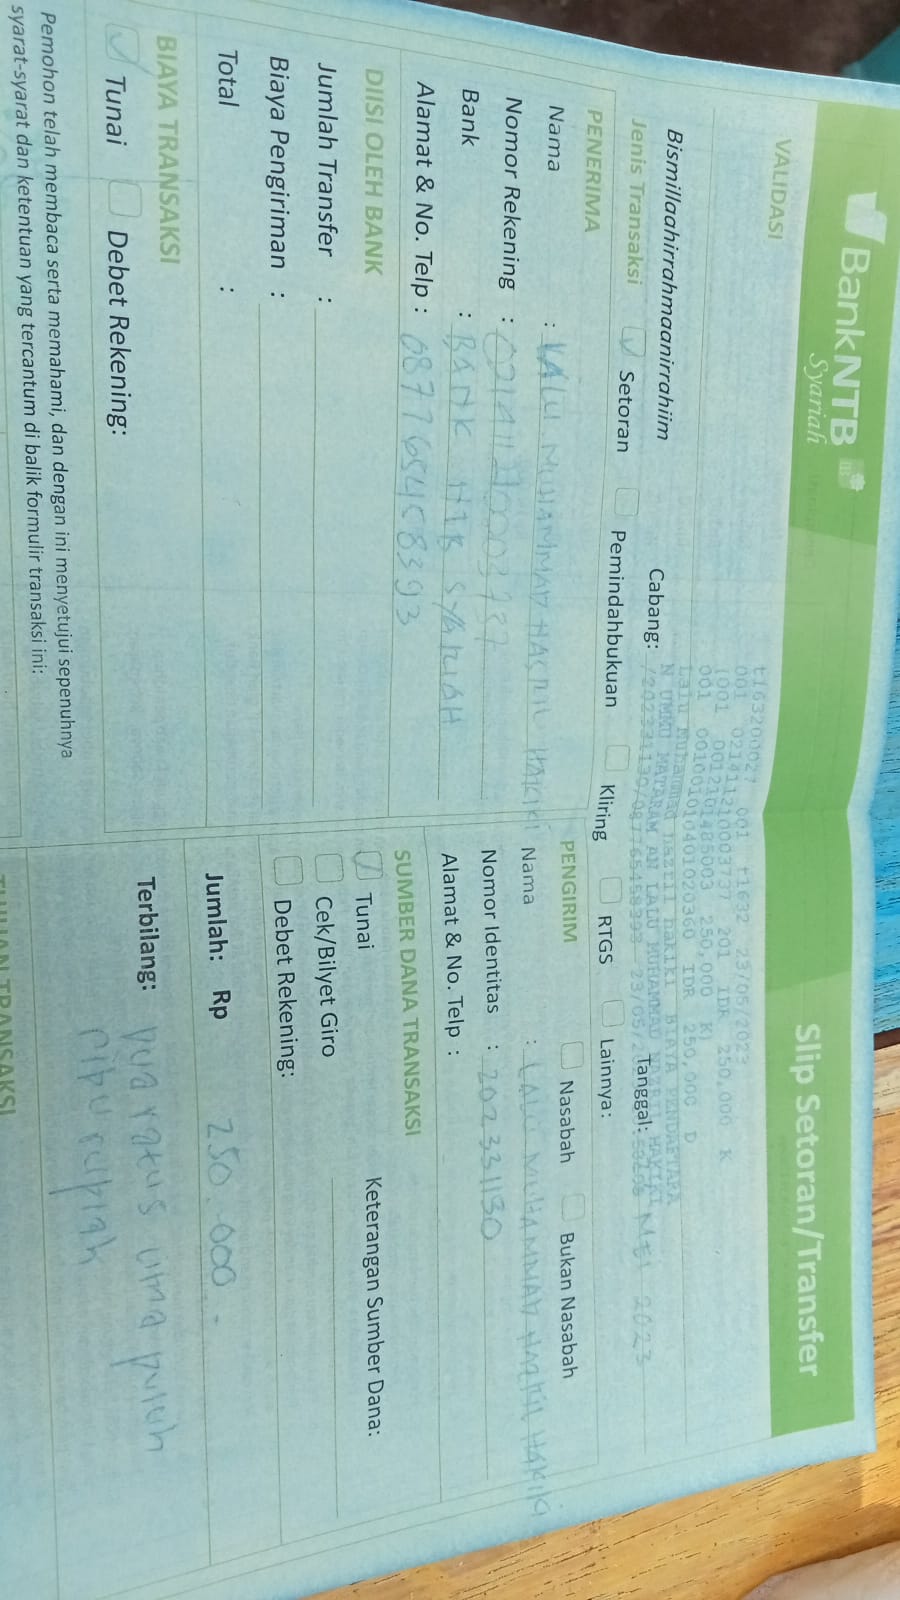 BankNTB
Syariah
Slip Setoran/Transfer
VALIDASI
t163200027 001 t1632 23/05/2023
001 0214112100003737 201 IDR 250,000 K
001 001001010401020360 IDR 250,000 D
Lalu Muhammad hazril hakiki BIAYA PENDAFTARA
N UMMU MATARAM AN LALU MUHAMMAD HAKIKI
/202331130/087765458393 23/05/2
Bismillaahirrahmaanirrahiim
Cabang:
Tanggal: Mei 2023
Jenis Transaksi
Setoran
Pemindahbukuan
Kliring
RTGS
Lainnya:
PENERIMA
Nama : LALU MUHAMMAD HAKIKI
Nomor Rekening :
Bank : BANK NTB SYARIAH
Alamat & No. Telp : 087765458393
PENGIRIM
Nasabah
Bukan Nasabah
Nama : LALU MUHAMMAD HAKIKI
Nomor Identitas : 202331130
Alamat & No. Telp :
DIISI OLEH BANK
Jumlah Transfer :
Biaya Pengiriman :
Total :
SUMBER DANA TRANSAKSI
Tunai
Keterangan Sumber Dana:
Cek/Bilyet Giro
Debet Rekening:
BIAYA TRANSAKSI
Tunai
Debet Rekening:
Jumlah: Rp 250.000.-
Terbilang: Dua ratus lima puluh
ribu rupiah
Pemohon telah membaca serta memahami, dan dengan ini menyetujui sepenuhnya
syarat-syarat dan ketentuan yang tercantum di balik formulir transaksi ini:
TUJUAN TRANSAKSI